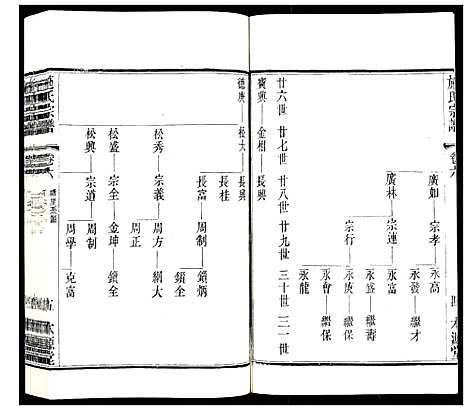 施氏宗譜
卷六
廣如 宗孝 永高
永發 繼才
廣林 宗連 永富
永盛 繼壽
宗行 永庚 繼保
永會 繼保
永龍
廿六世 廿七世 廿八世 廿九世 三十世 三一世
賓興 金相 長興
德庚 松大 長興
長桂
長富 周制 鎖炳
鎖全
松秀 宗義 周方 網大
周正
松盛 宗全 金坤 鎖全
松興 宗道 周制
周學 克富
施氏宗譜